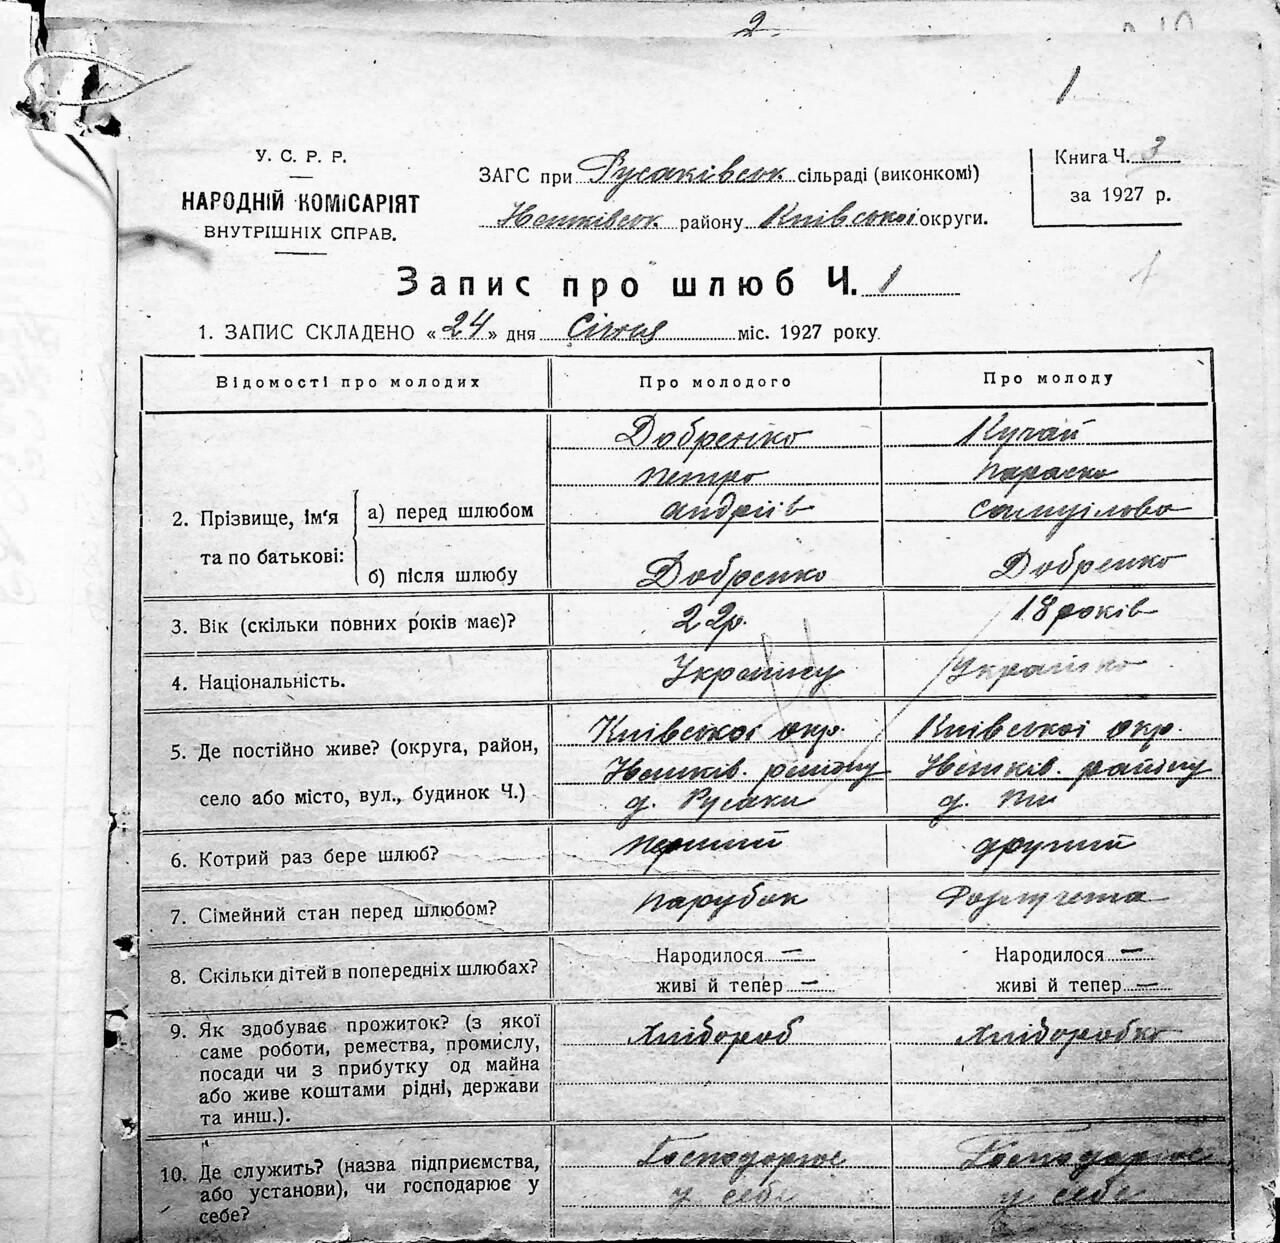 2.
1
У. С. Р. Р.
НАРОДНІЙ КОМІСАРІЯТ
ВНУТРІШНІХ СПРАВ.
ЗАГС при Русаківськ сільраді (виконкомі)
районy Київської округи.
Книга Ч. 3
за 1927 р.
Запис про шлюб Ч. 1
1. ЗАПИС СКЛАДЕНО « 24 » дня Січня міс. 1927 року
Відомості про молодих
Про молодого
Про молоду
2. Прізвище, ім'я та по батькові:
а) перед шлюбом
Добренко
Петро
Андріїв
Кучай
Параска
Самуілова
б) після шлюбу
Добренко
Добренко
3. Вік (скільки повних років має)?
22р.
18 років
4. Національність.
Українец
Українка
5. Де постійно живе? (округа, район,
село або місто, вул., будинок Ч.)
Київської окр.
району
д. Русаки
Київської окр.
району
д.
6. Котрий раз бере шлюб?
перший
другий
7. Сімейний стан перед шлюбом?
парубок
Розлучена
8. Скільки дітей в попередніх шлюбах?
Народилося —
живі й тепер —
Народилося —
живі й тепер —
9. Як здобуває прожиток? (з якої
саме роботи, ремества, промислу,
посади чи з прибутку од майна
або живе коштами рідні, держави
та инш.).
Хлібороб
Хліборобка
10. Де служить? (назва підприємства,
або установи), чи господарює у
себе?
Господарює
у себе
Господарює
у себе